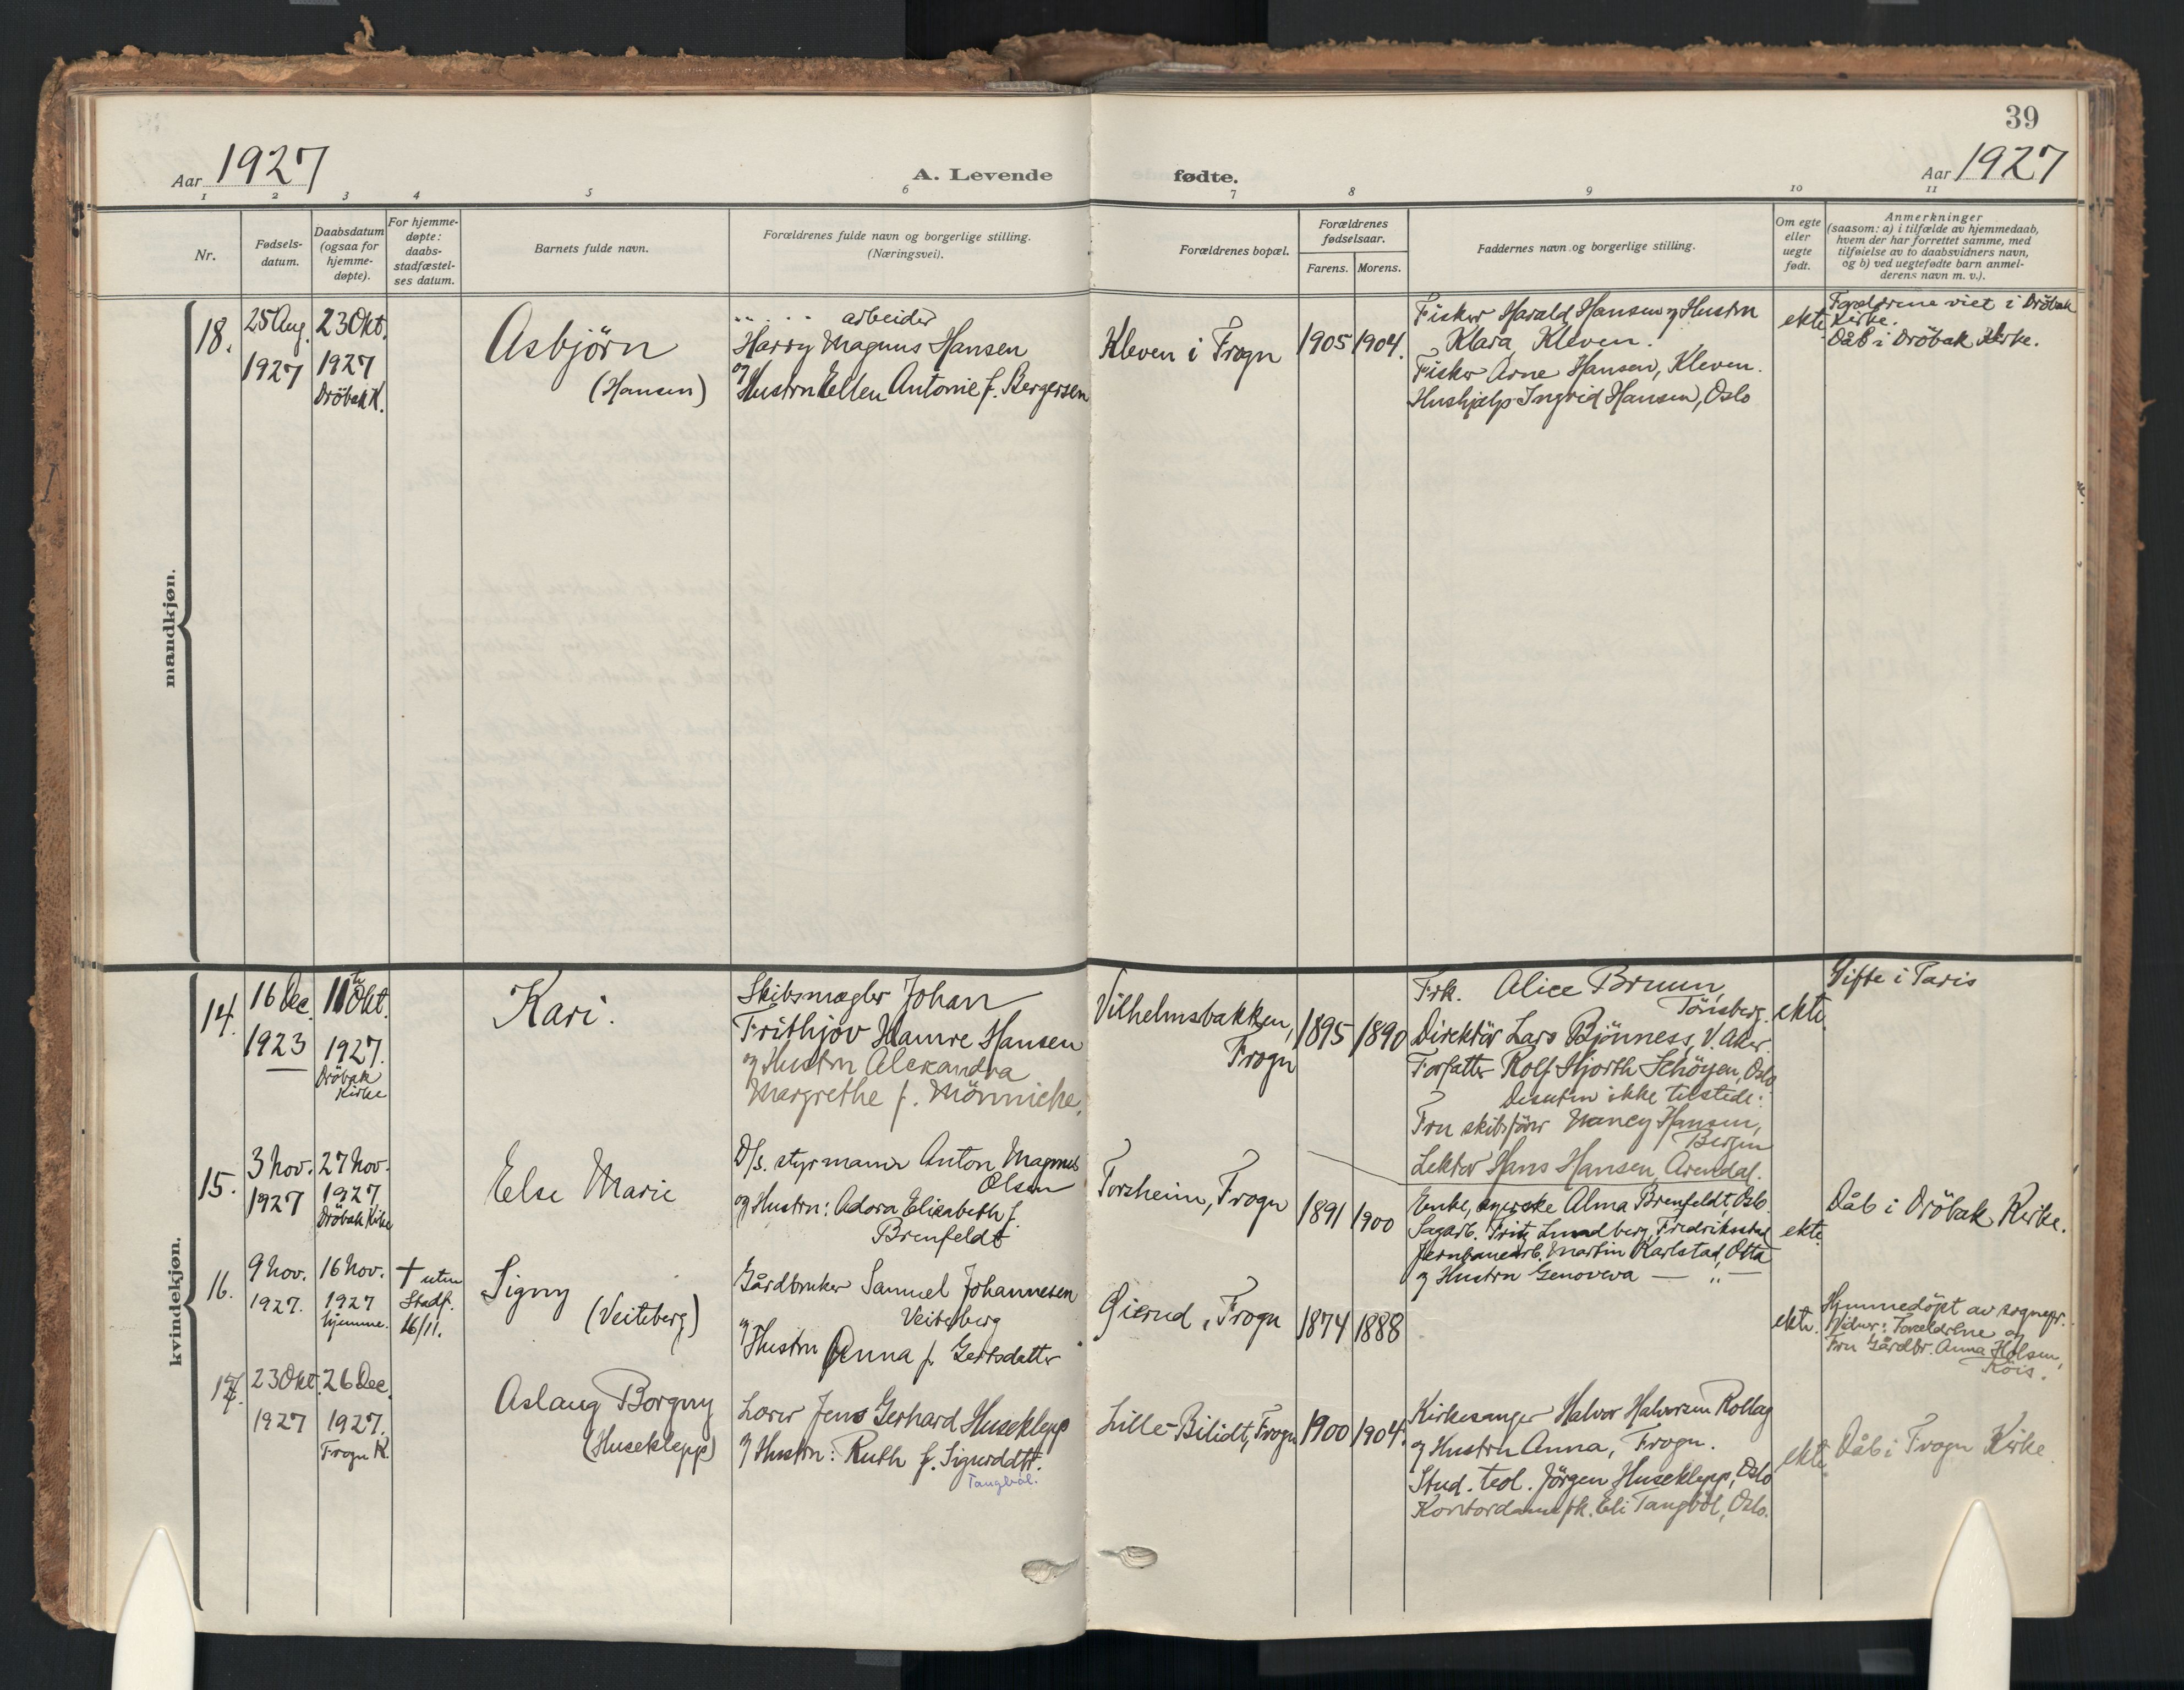 39
Aar 1927
A. Levende fødte.
Aar 1927
1 2 3 4 5 6 7 8 9 10 11
Nr.
Fødsels-
datum.
Daabsdatum
(ogsaa for
hjemme-
døpte).
For hjemme-
døpte:
daabs-
stadfæstel-
ses datum.
Barnets fulde navn.
Forældrenes fulde navn og borgerlige stilling.
(Næringsvei).
Forældrenes bopæl.
Forældrenes
fødselsaar.
Farens. Morens.
Faddernes navn og borgerlige stilling.
Om egte
eller
uegte
født.
Anmerkninger
(saasom: a) i tilfælde av hjemmedaab,
hvem der har forrettet samme, med
tilføielse av to daabsvidners navn,
og b) ved uegtefødte barn anmel-
derens navn m. v.).
mandkjøn.
18.
25 Aug.
1927
23 Okt.
1927
Dröbak K.
Asbjörn
(Hansen)
..... arbeider
Harry Magnus Hansen
og
Hustru Ellen Antonie f. Bergersen
Kleven i Frogn
1905
1904.
Fisker Harald Hansen og Hustru
Klara, Kleven.
Fisker Arne Hansen, Kleven.
Hushjælp Ingrid Hansen, Oslo
ekte
Forældrene viet i Dröbak
Kirke.
Dåb i Dröbak Kirke.
kvindekjøn.
14.
16 Dec.
1923
11te Okt.
1927.
Dröbak
Kirke
Kari.
Skibsmægler Johan
Frithjov Hamre Hansen
og Hustru Alexandra
Margrethe f. Mönniche.
Vilhelmsbakken,
Frogn
1895
1890
Frk. Alice Bruun,
Tönsberg.
Direktör Lars Bjönness, V. Aker.
Forfatter Rolf Hjorth Schöyen, Oslo
Desuten ikke tilstede:
Fru skibsförer Nancy Hansen,
Bergen
Lektor Hans Hansen, Arendal.
ekte.
Gifte i Paris
15.
3 Nov.
1927
27 Nov.
1927
Dröbak Kirke
Else Marie
D/s. styrmann Anton Magnus
Olsen
og Hustru: Adora Elisabeth f.
Brenfeldt
Torsheim, Frogn
1891
1900
Enke, syerske Alma Brenfeldt, Oslo.
Sagarb. Fritz Lundberg, Fredriksstad
Jernbanearb. Martin Karlstad, Otta
og Hustru Genoveva — „ —
ekte
Dåb i Dröbak Kirke.
16.
9 Nov.
1927.
16 Nov.
1927
hjemme.
† uten
Stadf.
16/11.
Signy
(Veiteberg)
Gårdbruker Samuel Johannesen
Veiteberg
og
Hustru Anna f. Gertsdatter
Gierud, Frogn
1874
1888
ekte.
Hjemmedöpt av sognepr.
Vidner: Forældrene og
Fru Gårdbr. Anna Holsen,
Röis.
17.
23 Okt.
1927
26 Dec.
1927.
Frogn K.
Aslaug Borgny
(Huseklepp)
Lærer Jens Gerhard Huseklepp
og Hustru: Ruth f. Sigurddtr.
Tangbøl.
Lille-Bilidt, Frogn
1900
1904.
Kirkesanger Halvor Halvorsen Rollag
og Hustru Anna, Frogn.
Stud. teol. Jörgen Huseklepp, Oslo
Kontordame frk. Eli Tangböl, Oslo.
ekte.
Dåb i Frogn Kirke.